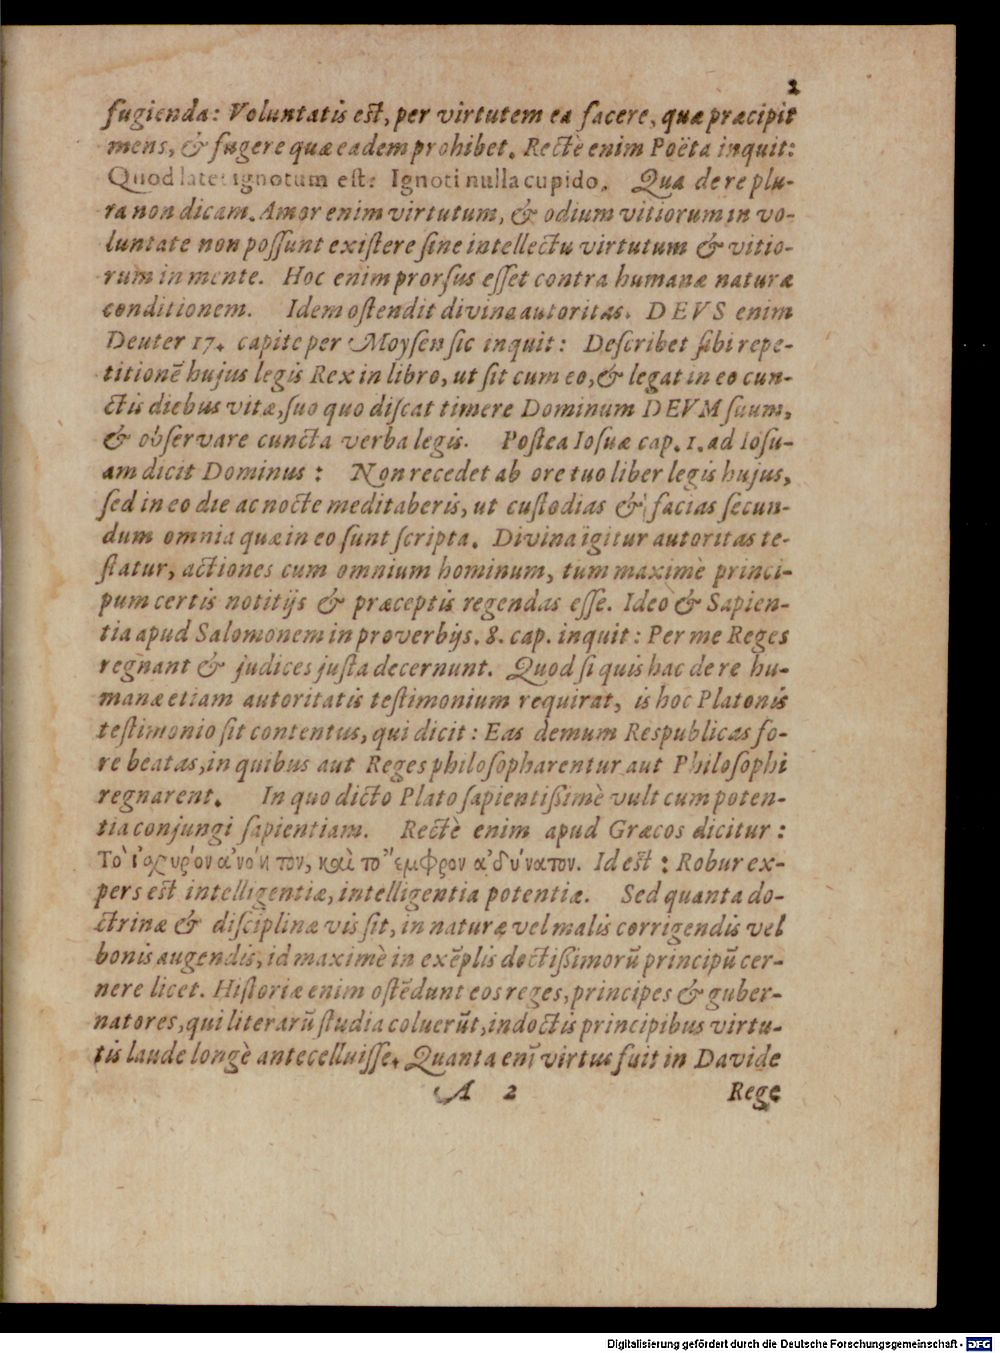 2
fugienda: Voluntatis est, per virtutem ea facere, quæ præcipit
mens, & fugere quæ eadem prohibet. Rectè enim Poëta inquit:
Quod latet ignotum est: Ignoti nulla cupido. Qua de re plu-
ra non dicam. Amor enim virtutum, & odium vitiorum in vo-
luntate non possunt existere sine intellectu virtutum & vitio-
rum in mente. Hoc enim prorsus esset contra humanæ naturæ
conditionem. Idem ostendit divina autoritas. DEVS enim
Deuter 17. capite per Moysen sic inquit: Describet sibi repe-
titionē hujus legis Rex in libro, ut sit cum eo, & legat in eo cun-
ctis diebus vitæ, suo quo discat timere Dominum DEVM suum,
& observare cuncta verba legis. Postea Iosuæ cap. 1. ad Iosu-
am dicit Dominus: Non recedet ab ore tuo liber legis hujus,
sed in eo die ac nocte meditaberis, ut custodias & facias secun-
dum omnia quæ in eo sunt scripta. Divina igitur autoritas te-
statur, actiones cum omnium hominum, tum maxime princi-
pum certis notitijs & præceptis regendas esse. Ideo & Sapien-
tia apud Salomonem in proverbijs. 8. cap. inquit: Per me Reges
regnant & judices justa decernunt. Quod si quis hac de re hu-
manæ etiam autoritatis testimonium requirat, is hoc Platonis
testimonio sit contentus, qui dicit: Eas demum Respublicas fo-
re beatas, in quibus aut Reges philosopharentur aut Philosophi
regnarent. In quo dicto Plato sapientißimè vult cum poten-
tia conjungi sapientiam. Rectè enim apud Græcos dicitur:
Το ἰσχυρόν ἀνόητον, καὶ το ἔμφρον ἀδύνατον. Id est: Robur ex-
pers est intelligentiæ, intelligentia potentiæ. Sed quanta do-
ctrinæ & disciplinæ vis sit, in naturæ vel malis corrigendis vel
bonis augendis, id maximè in exēplis doctißimorū principū cer-
nere licet. Historiæ enim ostēdunt eos reges, principes & guber-
natores, qui literarū studia coluerūt, indoctis principibus virtu-
tis laude longè antecelluisse. Quanta enī virtus fuit in Davide
A 2 Rege
Digitalisierung gefördert durch die Deutsche Forschungsgemeinschaft - DFG